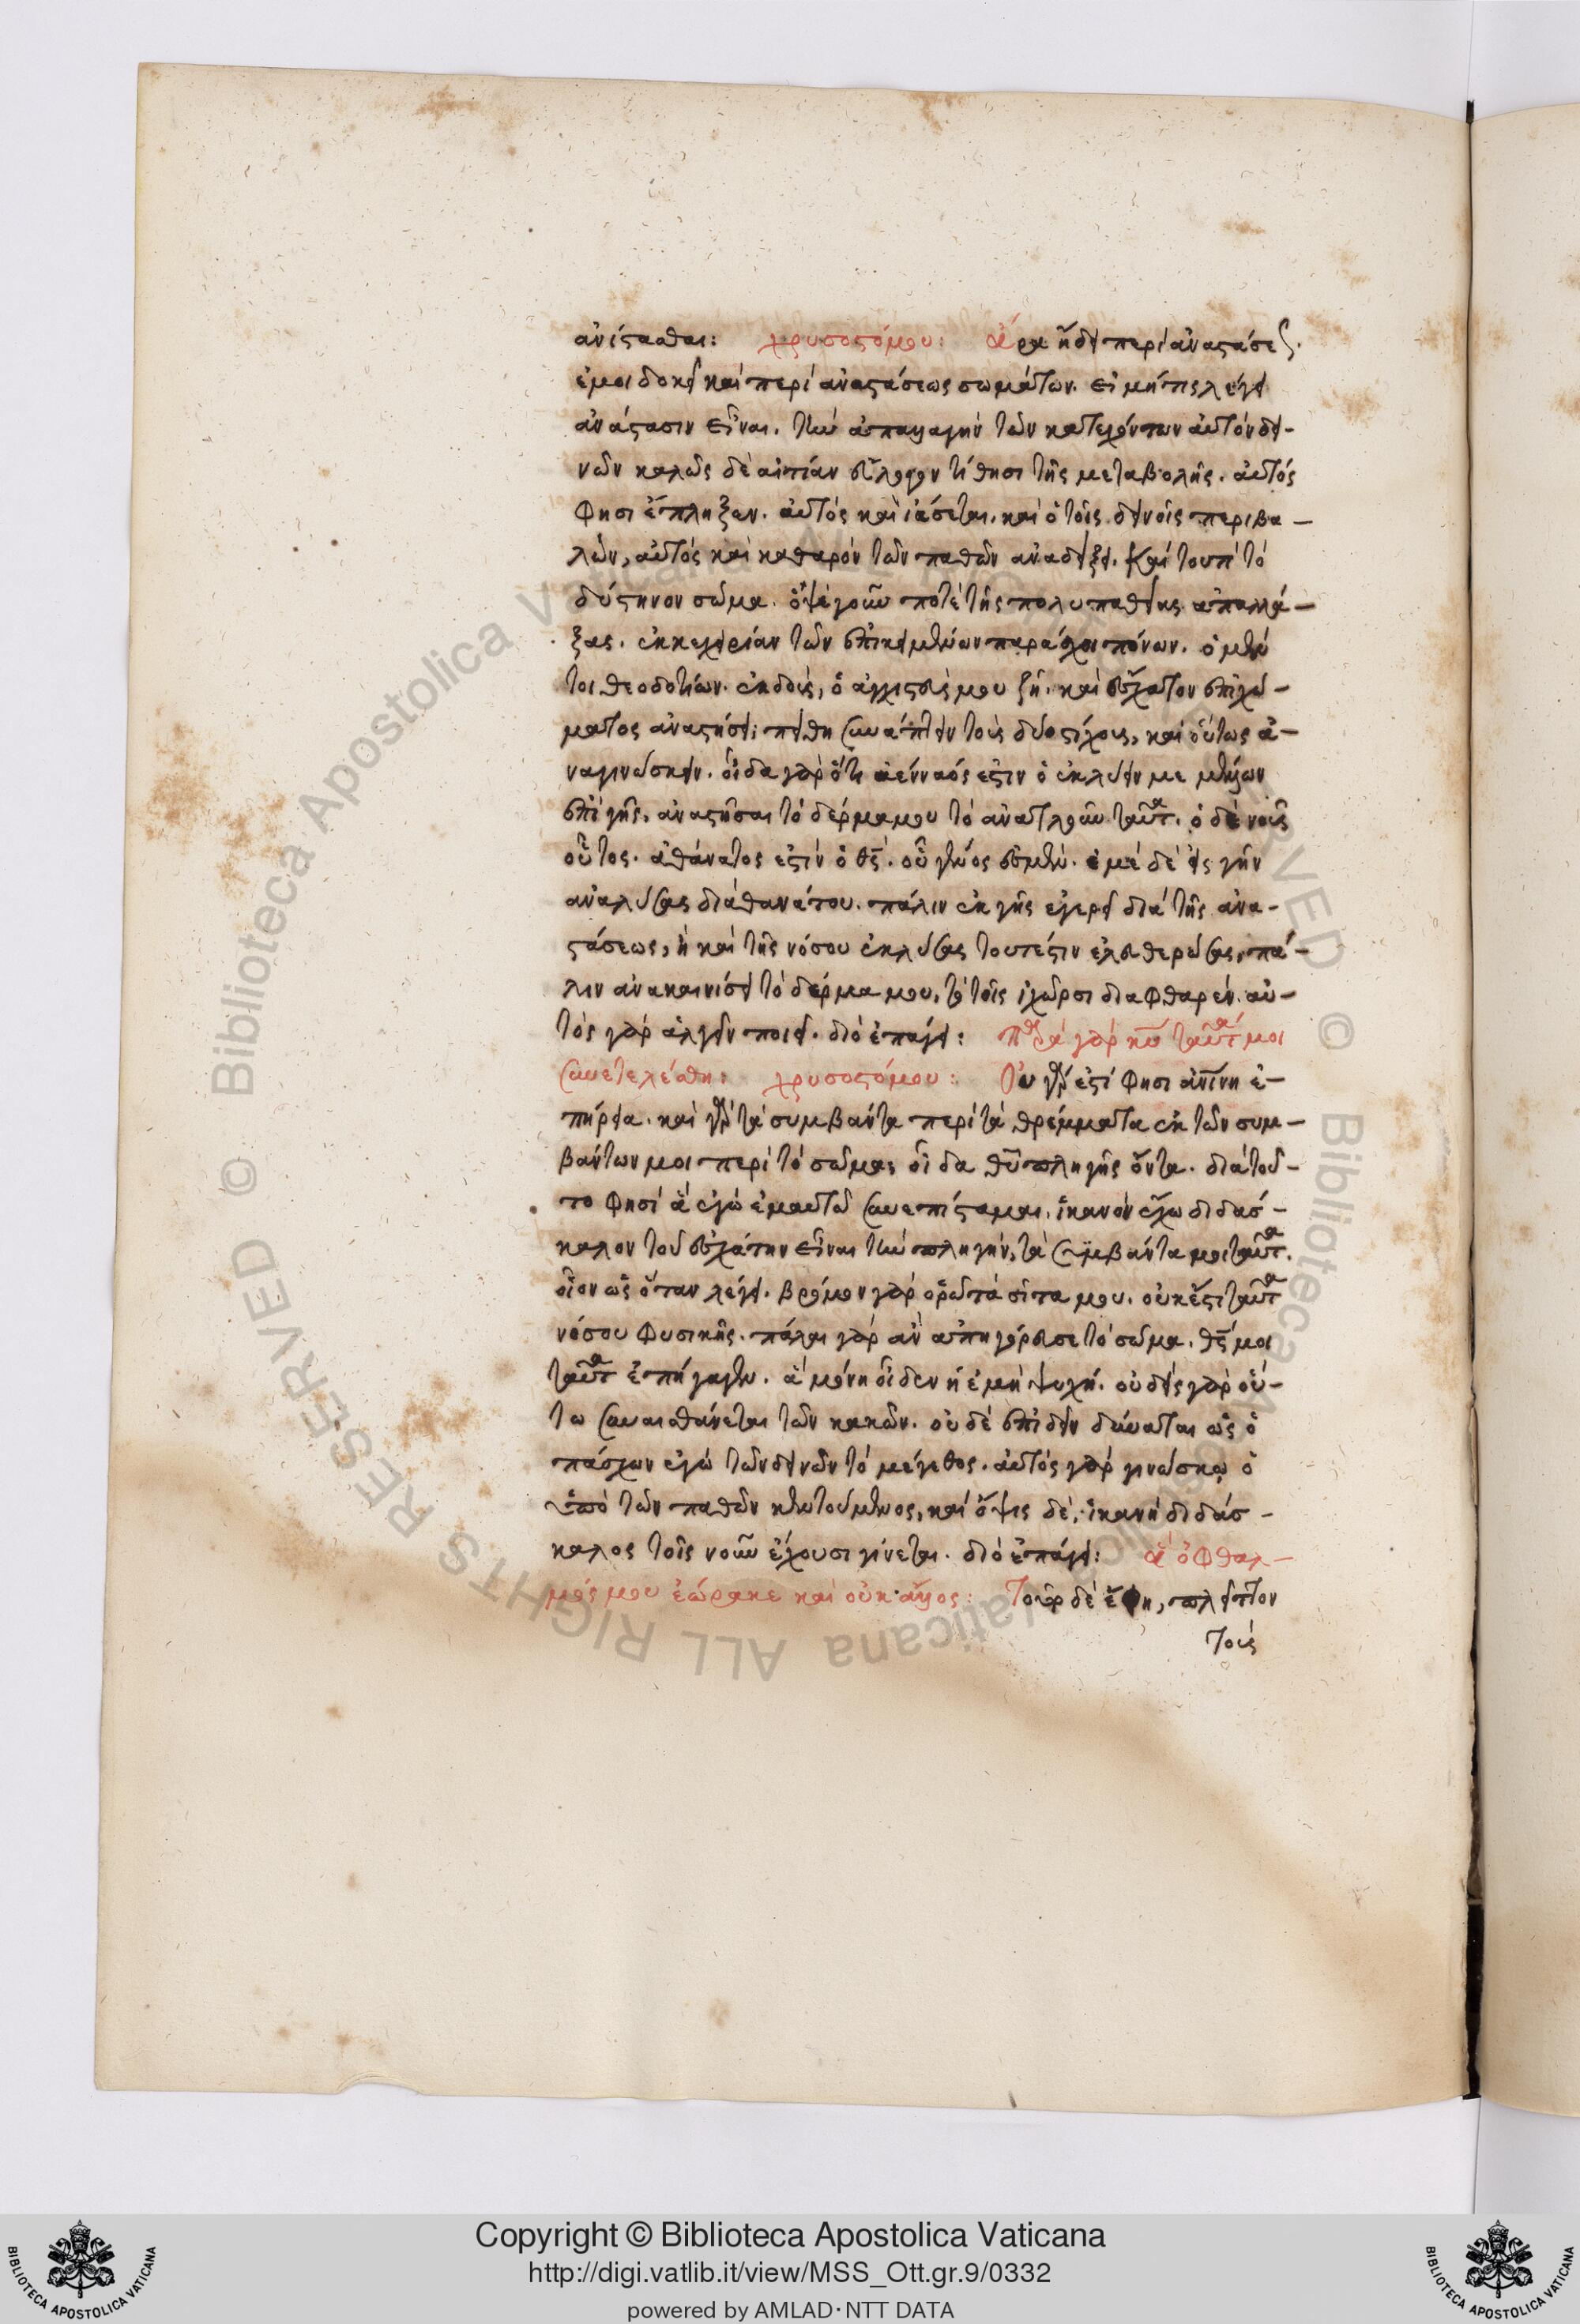 ἀνίστασθαι: χρυσοστόμου: ἆρα ἤδει περὶ ἀναστάσεως.
ἐμοὶ δοκεῖ καὶ περὶ ἀναστάσεως σωμάτων. εἰ μή τις λέγει
ἀνάστασιν εἶναι. τὴν ἀπαλλαγὴν τῶν κατεχόντων αὐτὸν δει-
νῶν καλῶς δὲ αἰτίαν εὔλογον τίθησι τῆς μεταβολῆς. αὐτός
φησι ἔπληξεν. αὐτὸς καὶ ἰάσεται. καὶ ὁ τοῖς δεινοῖς περιβα-
λὼν, αὐτὸς καὶ καθαρὸν τῶν παθῶν ἀναδείξει. καὶ τουτὶ τὸ
δύστηνον σῶμα. ὀψὲ γοῦν ποτὲ τῆς πολυπαθείας ἀπαλλά-
ξας. ἐκεχειρίαν τῶν ἐπικειμένων παράσχοι πόνων. ὁ μέν
τοι θεοδοτίων. ἐκδοὺς, ὁ ἀγχιστεύς μου ζῇ. καὶ ἔσχατον ἐπὶ χώ-
ματος ἀναστήσει: πείθη συνάπτειν τοὺς δύο στίχους, καὶ οὕτως ἀ-
ναγινώσκειν. οἶδα γὰρ ὅτι ἀένναός ἐστιν ὁ ἐκλύειν με μέλλων
ἐπὶ γῆς. ἀναστῆσαι τὸ δέρμα μου τὸ ἀναντλοῦν ταῦτα. ὁ δὲ νοῦς
οὗτος. ἀθάνατος ἐστὶν ὁ θς. οὗ γένος ἐσμέν. ἐμὲ δὲ εἰς γῆν
ἀναλύσας διὰ θανάτου. πάλιν ἐκ γῆς ἐγερεῖ διὰ τῆς ἀνα-
στάσεως, ἢ καὶ τῆς νόσου ἐκλύσας τουτέστιν ἐλευθερώσας, πά-
λιν ἀνακαινίσει τὸ δέρμα μου, τὸ τοῖς ἰχῶρσι διαφθαρέν. αὐ-
τὸς γὰρ ἀλγεῖν ποιεῖ. διὸ ἐπάγει: παρὰ γὰρ κυ ταῦτά μοι
συνετελέσθη: χρυσοστόμου: Οὐ γάρ ἐστι φησι ἀνθρωπίνη ἐ-
πήρεια. καὶ γὰρ τὰ συμβάντα περὶ τὰ θρέμματα ἐκ τῶν συμ-
βάντων μοι περὶ τὸ σῶμα, οἶδα θυ πληγῆς ὄντα. διὰ τοῦ-
το φησὶ ἃ ἐγὼ ἐμαυτῷ συνεπίσταμαι. ἱκανὸν ἔχω διδάσ-
καλον τοῦ ἐσχάτην εἶναι τὴν πληγήν, τὰ συμβάντα μοι ταῦτα.
οἷον ὡς ὅταν λέγει. βρόμον γὰρ ὁρῶ τὰ σῖτα μου. οὐκ ἔστι ταῦτα
νόσου φυσικῆς. πάλαι γὰρ ἂν ἀπηγόρευσε τὸ σῶμα. θς μοι
ταῦτα ἐπήγαγεν. ἃ μόνη οἶδεν ἡ ἐμὴ ψυχή. οὐδεὶς γὰρ οὕ-
τω συναισθάνεται τῶν κακῶν. οὐδὲ ἐπιδεῖν δύναται ὡς ὁ
πάσχων ἐγὼ τῶν δεινῶν τὸ μέγεθος. αὐτὸς γὰρ γινώσκω ὁ
ὑπὸ τῶν παθῶν κεντούμενος, καὶ ὄψις δὲ, ἱκανὴ διδάσ-
καλος τοῖς νοῦν ἔχουσι γίνεται. διὸ ἐπάγει: ἃ ὁ ὀφθαλ-
μός μου ἑώρακε καὶ οὐκ ἄλλος: Τοῦτο δὲ ἔφη, πλεῖστον
τοὺς